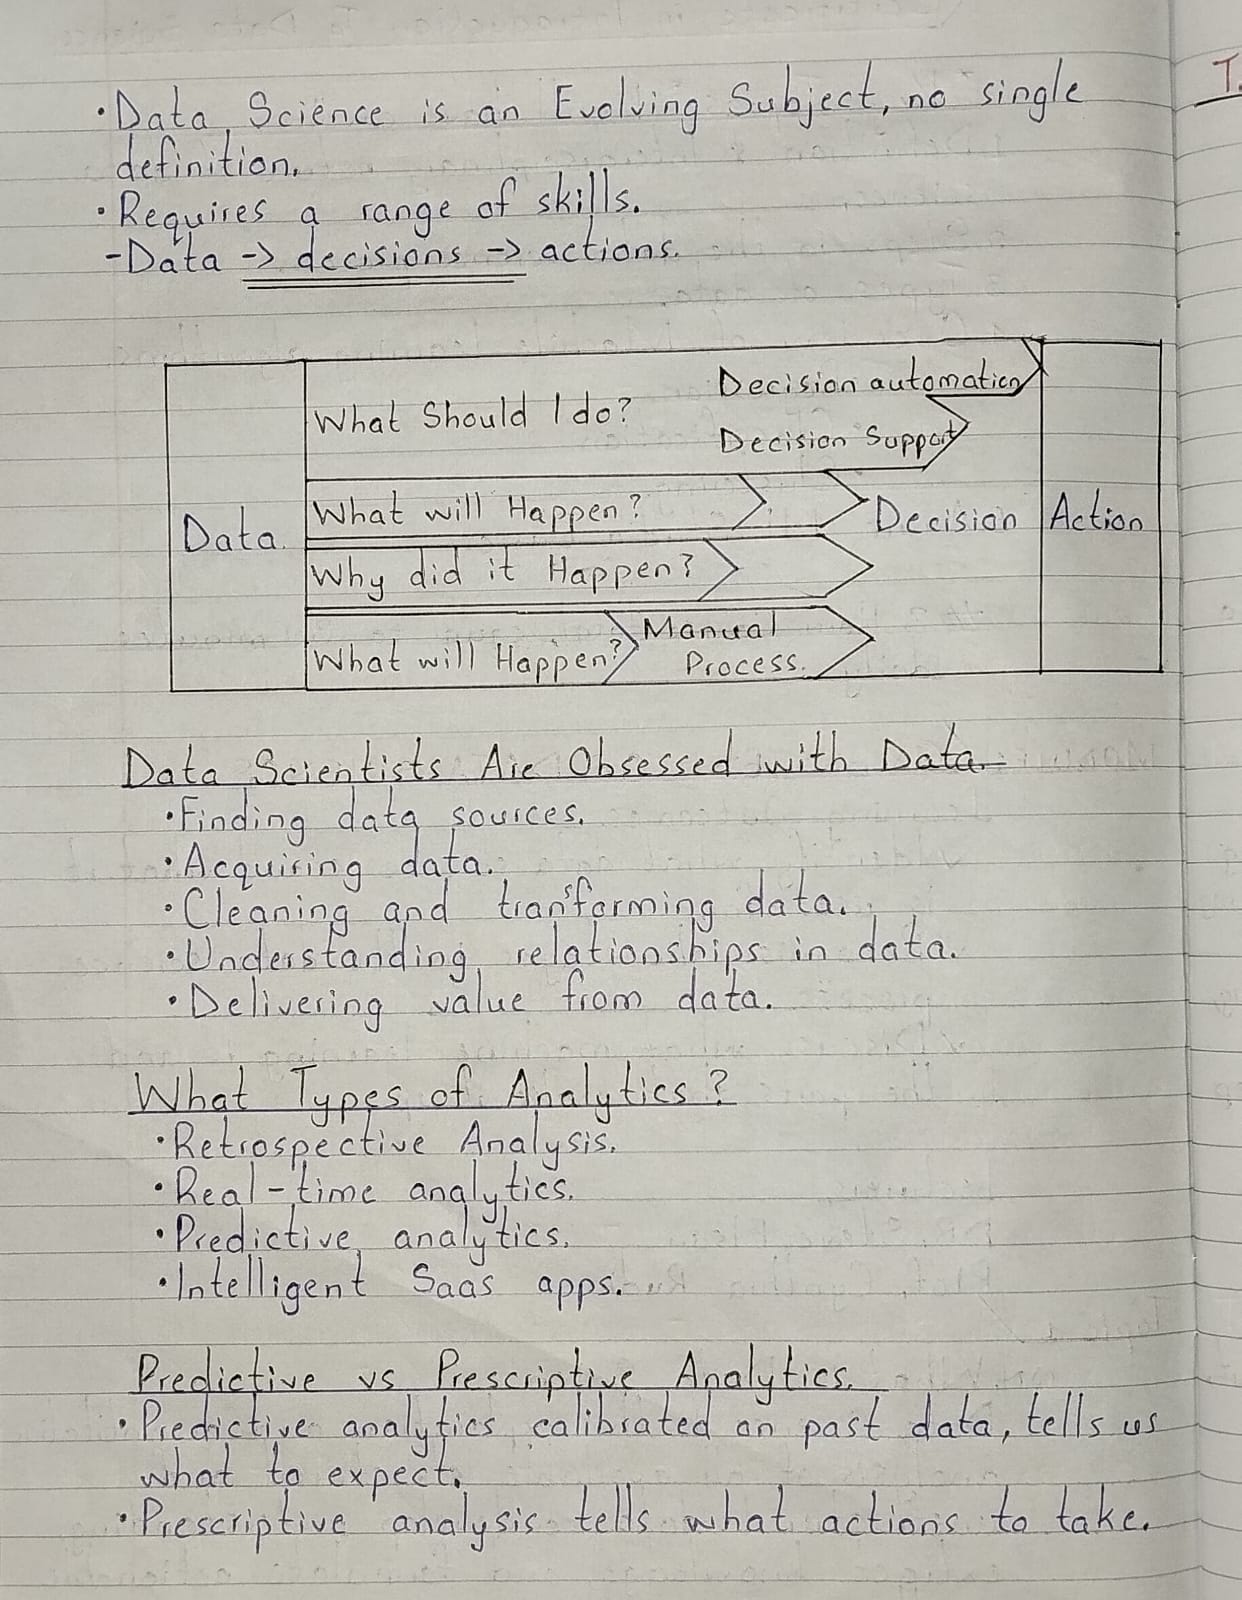 • Data Science is an Evolving Subject, no single
definition.
• Requires a range of skills.
- Data -> decisions -> actions.
T.
Data
What Should I do?
Decision automation
Decision Support
What will Happen?
Why did it Happen?
What will Happen?
Manual
Process.
Decision
Action
Data Scientists Are Obsessed with Data.
• Finding data sources.
• Acquiring data.
• Cleaning and transforming data.
• Understanding relationships in data.
• Delivering value from data.
What Types of Analytics?
• Retrospective Analysis.
• Real-time analytics.
• Predictive analytics.
• Intelligent Saas apps.
Predictive vs Prescriptive Analytics.
• Predictive analytics calibrated on past data, tells us
what to expect.
• Prescriptive analysis tells what actions to take.